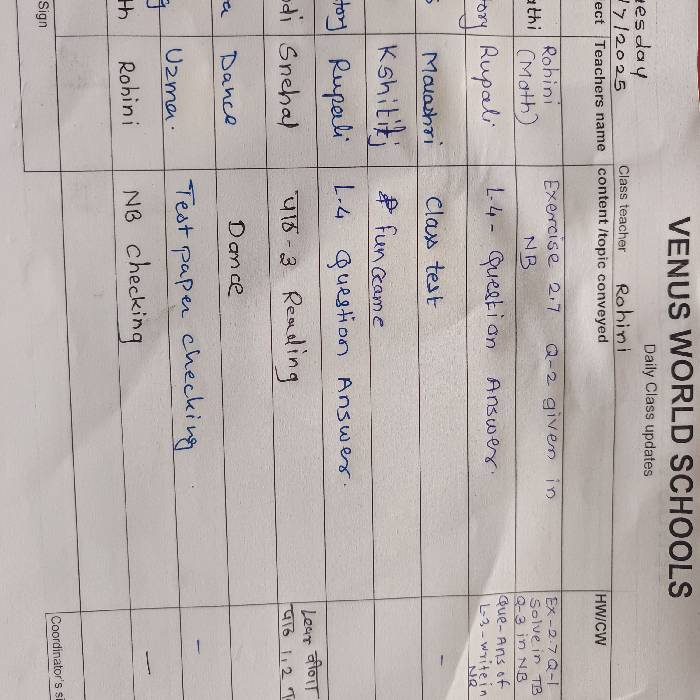 VENUS WORLD SCHOOLS
Daily Class updates
esday
/7/2025 Class teacher Rohini
ect Teachers name content /topic conveyed HW/CW
athi Rohini (Math) Exercise 2.7 Q-2 given in NB
EX-2.7 Q-1
Solve in TB
Q-3 in NB
tory Rupali L-4- Question Answer.
Que-Ans of
L-3-write in
NB
Class test
Kshitij fun Game
tory Rupali L-4 Question Answer.
di Snehal पाठ-3 Reading
पाठ 1, 2
a Dance Dance
Uzma. Test paper checking -
th Rohini NB checking -
Sign Coordinator's si